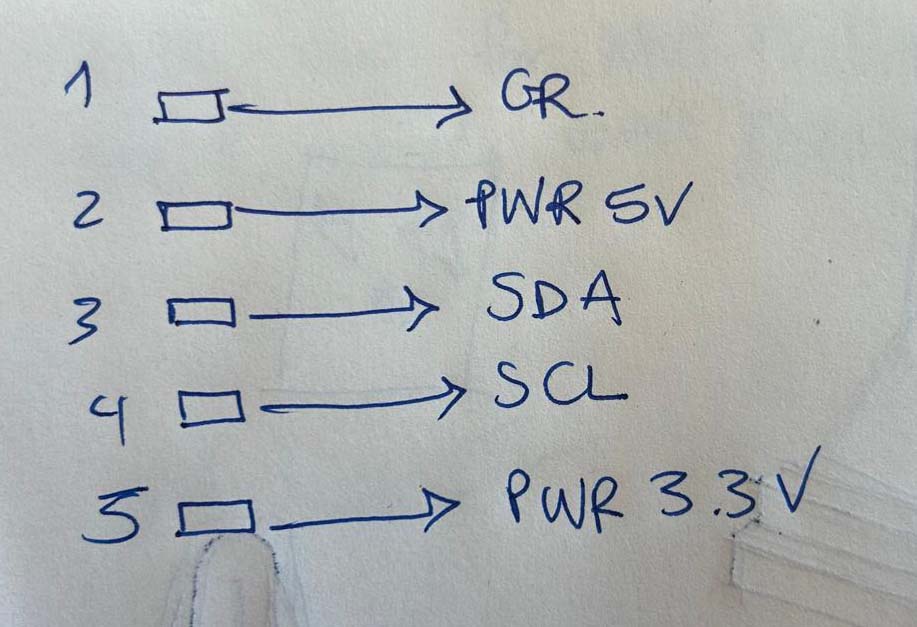 1 GR.
2 PWR 5V
3 SDA
4 SCL
5 PWR 3.3V